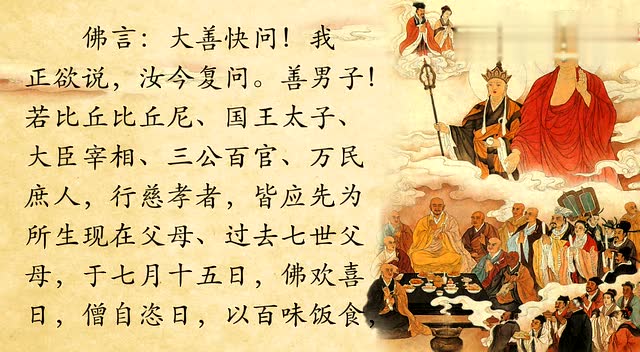 佛言：大善快问！我
正欲说，汝今复问。善男子！
若比丘比丘尼、国王太子、
大臣宰相、三公百官、万民
庶人，行慈孝者，皆应先为
所生现在父母、过去七世父
母，于七月十五日，佛欢喜
日，僧自恣日，以百味饭食，